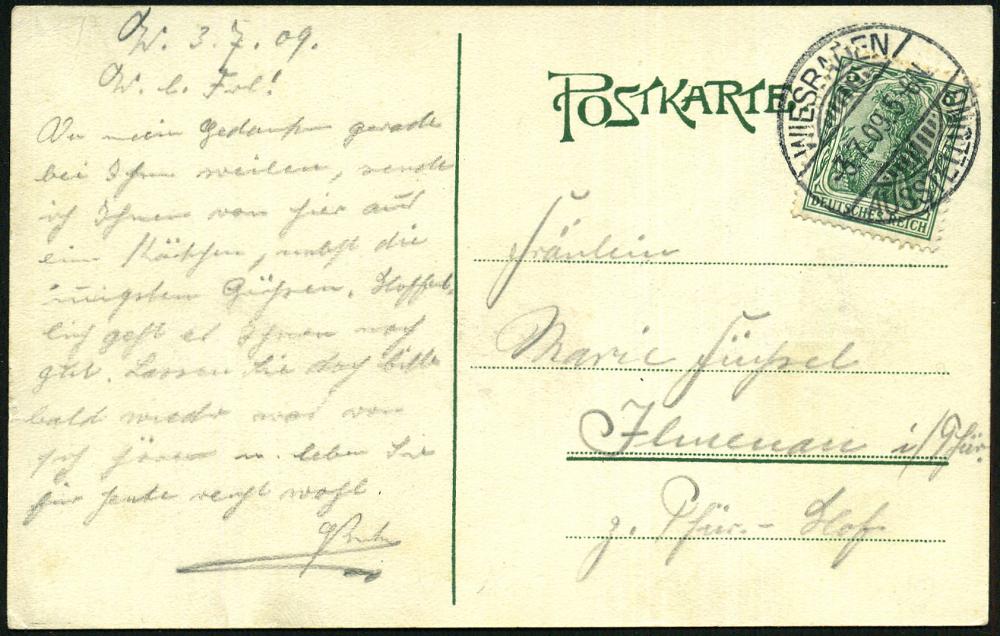 W. 3.7.09.
W. l. Frl!
Da meine Gedanken gerade
bei Ihnen weilen, sende
ich Ihnen von hier aus
ein Kärtchen, nebst die
innigsten Grüßen. Hoffent-
lich geht es Ihnen noch
gut. Lassen Sie doch bitte
bald wieder was von
sich hören u. leben Sie
für heute recht wohl.
POSTKARTE
WIESBADEN
3.7.09.5-6
AUSSTELLUNG
DEUTSCHES REICH
Fräulein
Marie Füchsel
Ilmenau i/Thür.
z. Thür.- Hof